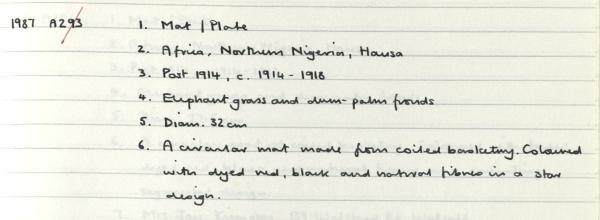 1987 A293 1. Mat / Plate
2. Africa, Northern Nigeria, Hausa
3. Post 1914, c. 1914 - 1918
4. Elephant grass and dum-palm fronds
5. Diam. 32cm
6. A circular mat made from coiled basketry. Coloured
with dyed red, black and natural fibres in a star
design.